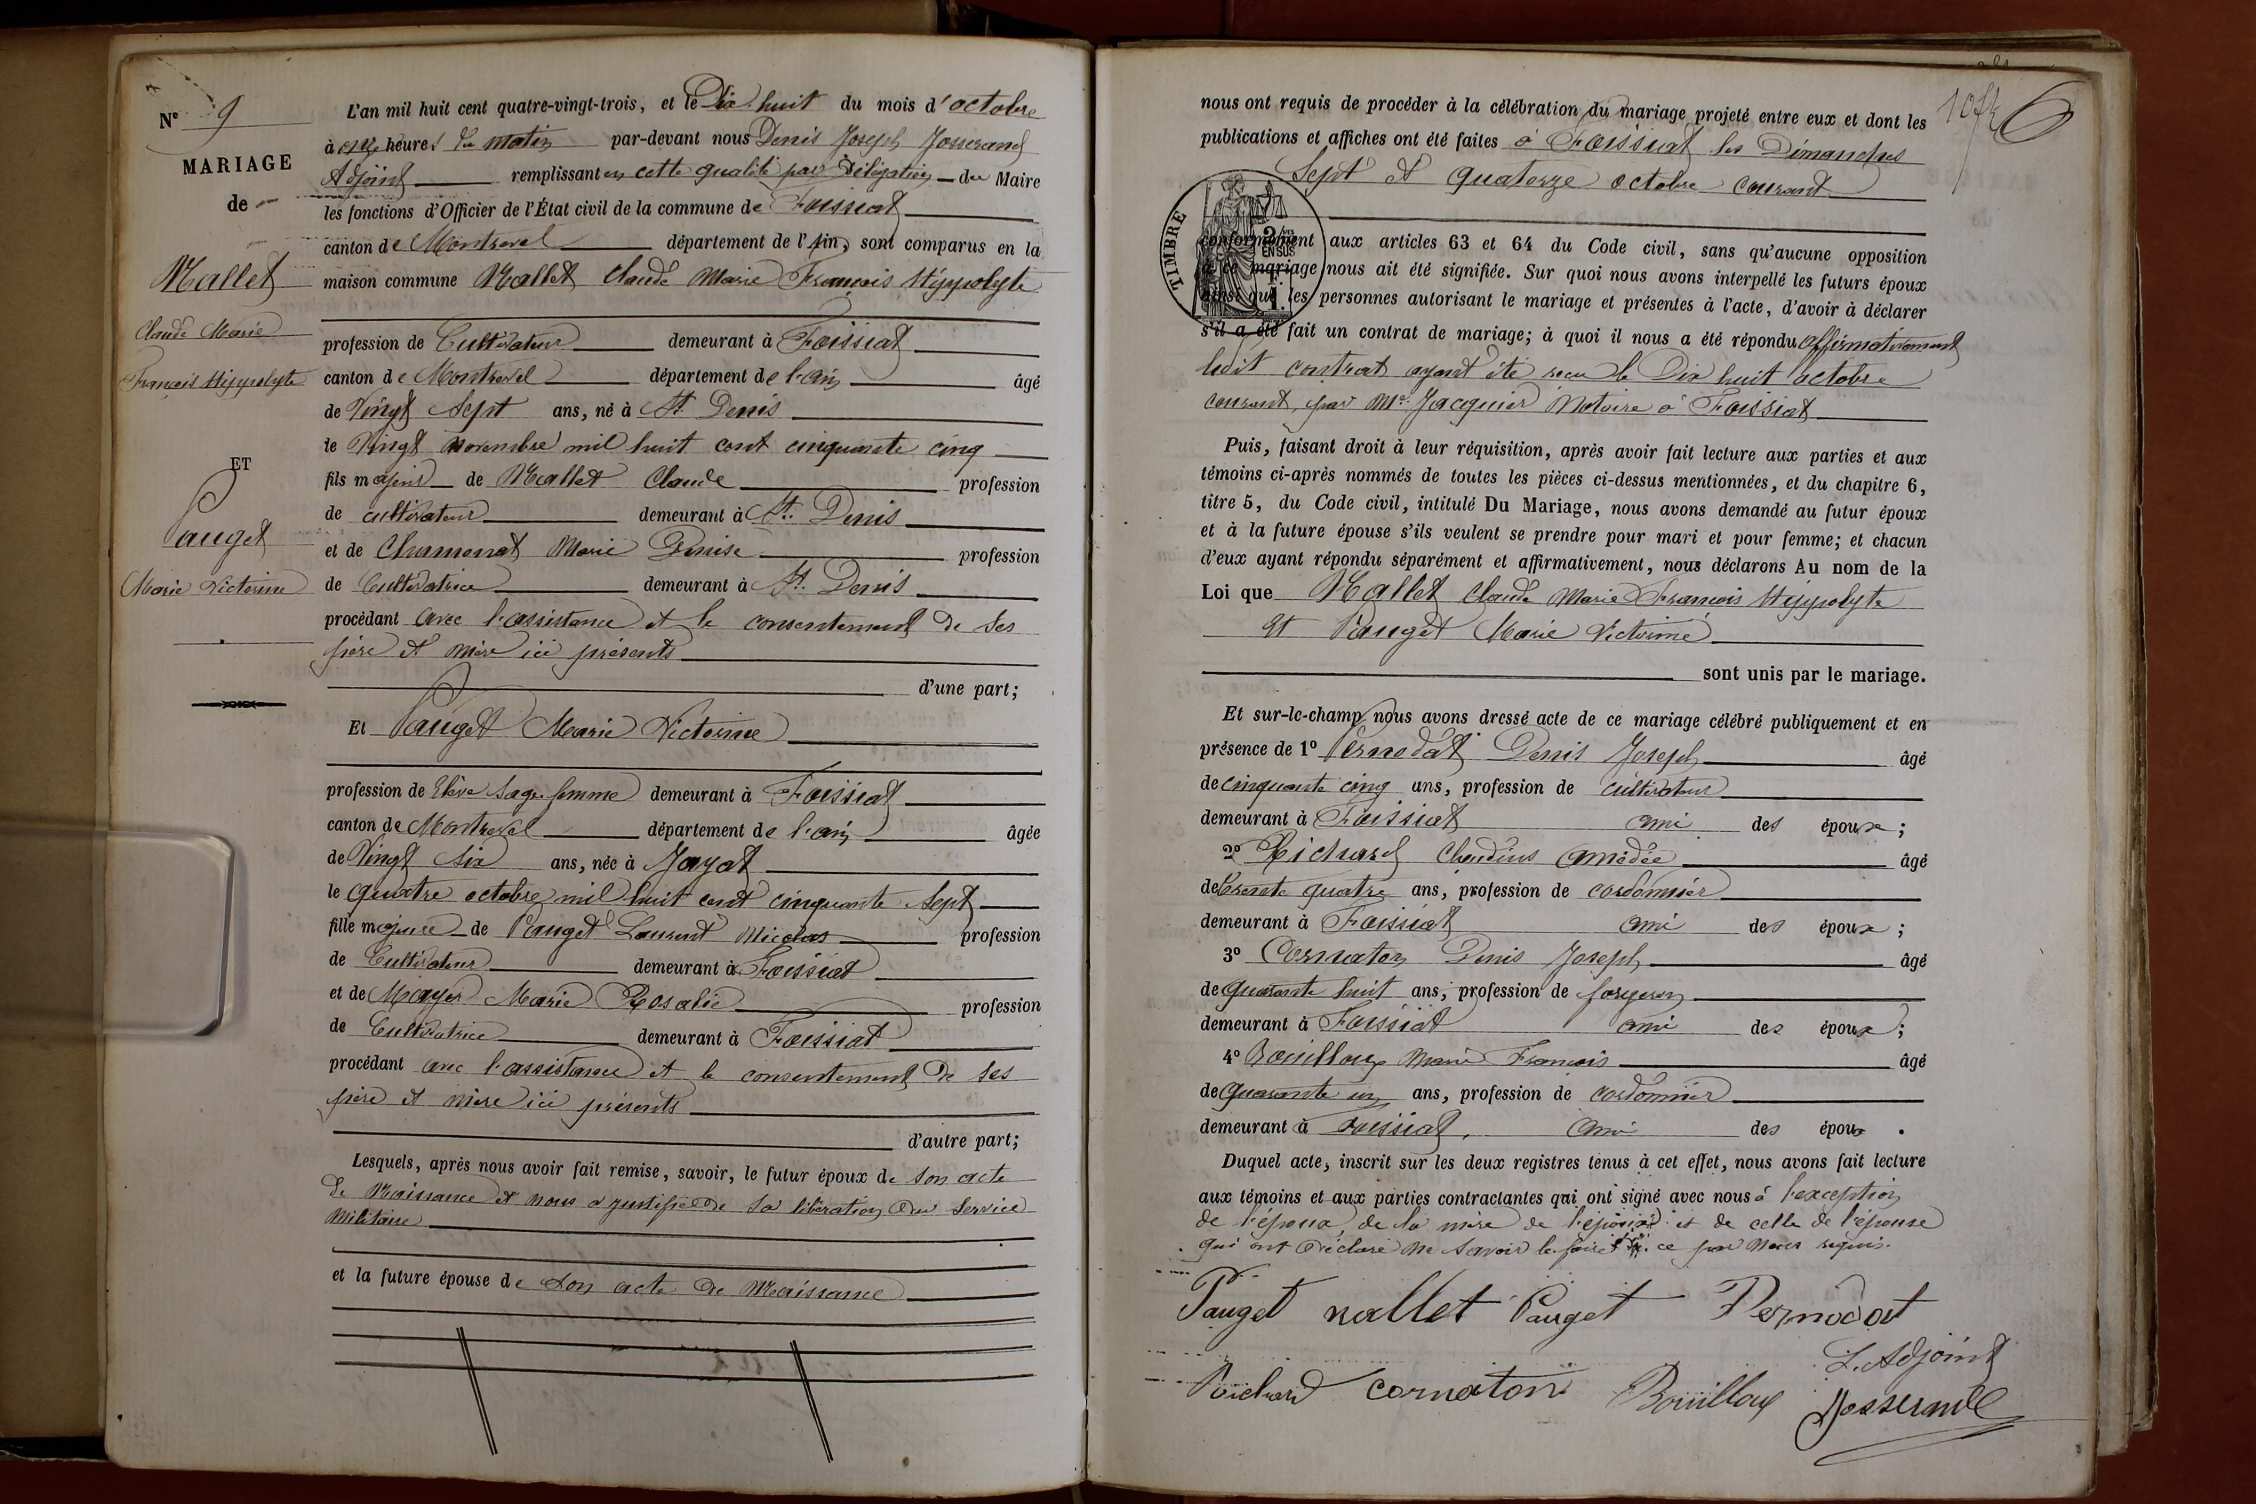 N° 9
MARIAGE
de
Mallet
Claude Marie
François Hippolyte
ET
Pauget
Marie Victorine
L'an mil huit cent quatre-vingt-trois, et le Dix huit du mois d'octobre
à onze heures du matin par-devant nous Denis Joseph Josserand
Adjoint remplissant en cette qualité par délégation du Maire
les fonctions d'Officier de l'État civil de la commune de Foissiat
canton de Montrevel département de l'Ain, sont comparus en la
maison commune Mallet Claude Marie François Hippolyte
profession de Cultivateur demeurant à Foissiat
canton de Montrevel département de l'ain âgé
de Vingt Sept ans, né à St. Denis
le Vingt novembre mil huit cent cinquante cinq
fils majeur de Mallet Claude profession
de cultivateur demeurant à St. Denis
et de Chamonat Marie Denise profession
de Cultivatrice demeurant à St. Denis
procédant avec l'assistance et le consentement de ses
père et mère ici présents
d'une part;
Et Pauget Marie Victorine
profession de Elève Sage femme demeurant à Foissiat
canton de Montrevel département de l'ain âgée
de Vingt Six ans, née à Jayat
le quatre octobre mil huit cent cinquante Sept
fille majeure de Pauget Laurent Nicolas profession
de Cultivateur demeurant à Foissiat
et de Moyer Marie Rosalie profession
de Cultivatrice demeurant à Foissiat
procédant avec l'assistance et le consentement de ses
père et mère ici présents
d'autre part;
Lesquels, après nous avoir fait remise, savoir, le futur époux de son acte
de Naissance et nous a justifié de sa libération du Service
Militaire
et la future épouse de son acte de Naissance
6
nous ont requis de procéder à la célébration du mariage projeté entre eux et dont les
publications et affiches ont été faites à Foissiat les Dimanches
Sept et quatorze octobre courant
TIMBRE
2/10es
EN SUS
conformément aux articles 63 et 64 du Code civil, sans qu'aucune opposition
à ce mariage nous ait été signifiée. Sur quoi nous avons interpellé les futurs époux
ainsi que les personnes autorisant le mariage et présentes à l'acte, d'avoir à déclarer
s'il a été fait un contrat de mariage; à quoi il nous a été répondu affirmativement
ledit contrat ayant été recu le Dix huit octobre
courant, par Me. Jacquier Notaire à Foissiat
Puis, faisant droit à leur réquisition, après avoir fait lecture aux parties et aux
témoins ci-après nommés de toutes les pièces ci-dessus mentionnées, et du chapitre 6,
titre 5, du Code civil, intitulé Du Mariage, nous avons demandé au futur époux
et à la future épouse s'ils veulent se prendre pour mari et pour femme; et chacun
d'eux ayant répondu séparément et affirmativement, nous déclarons Au nom de la
Loi que Mallet Claude Marie François Hippolyte
et Pauget Marie Victorine
sont unis par le mariage.
Et sur-le-champ nous avons dressé acte de ce mariage célébré publiquement et en
présence de 1° Pernodat Denis Joseph âgé
de cinquante cinq ans, profession de cultivateur
demeurant à Foissiat ami des époux;
2° Richard Claudius Amédée âgé
de trente quatre ans, profession de cordonnier
demeurant à Foissiat ami des époux;
3° Cornaton Denis Joseph âgé
de quarante huit ans, profession de forgeron
demeurant à Foissiat ami des époux;
4° Bouilloux Marie François âgé
de quarante un ans, profession de cordonnier
demeurant à Foissiat, ami des époux.
Duquel acte, inscrit sur les deux registres tenus à cet effet, nous avons fait lecture
aux témoins et aux parties contractantes qui ont signé avec nous à l'exception
de l'époux, de la mère de l'époux et de celle de l'épouse
qui ont déclaré ne savoir le faire de ce par Nous requis.
Pauget mallet Pauget Pernodat
L'Adjoint
Richard cornaton Bouilloux Josserand